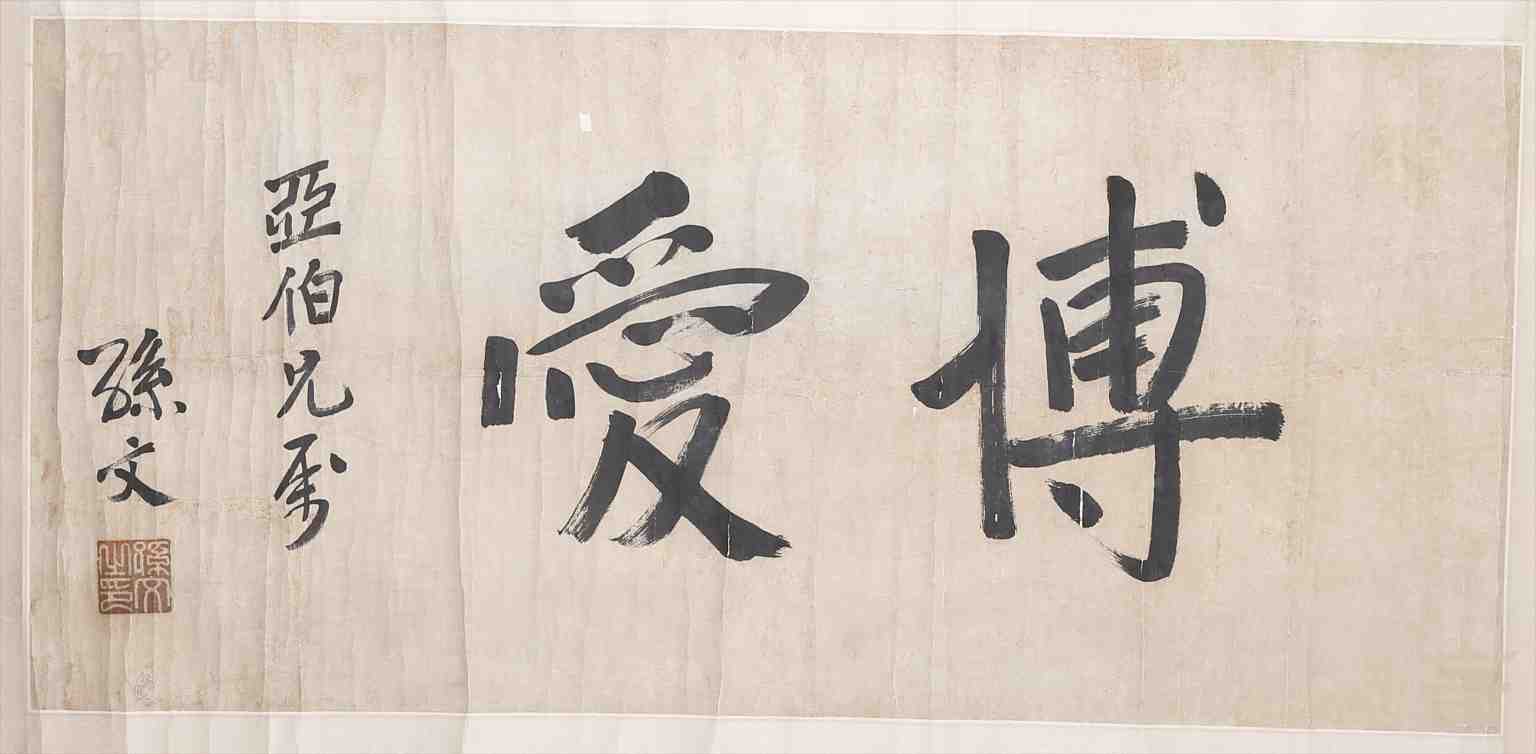 博愛
亞伯兄属
孫文
孫文之印